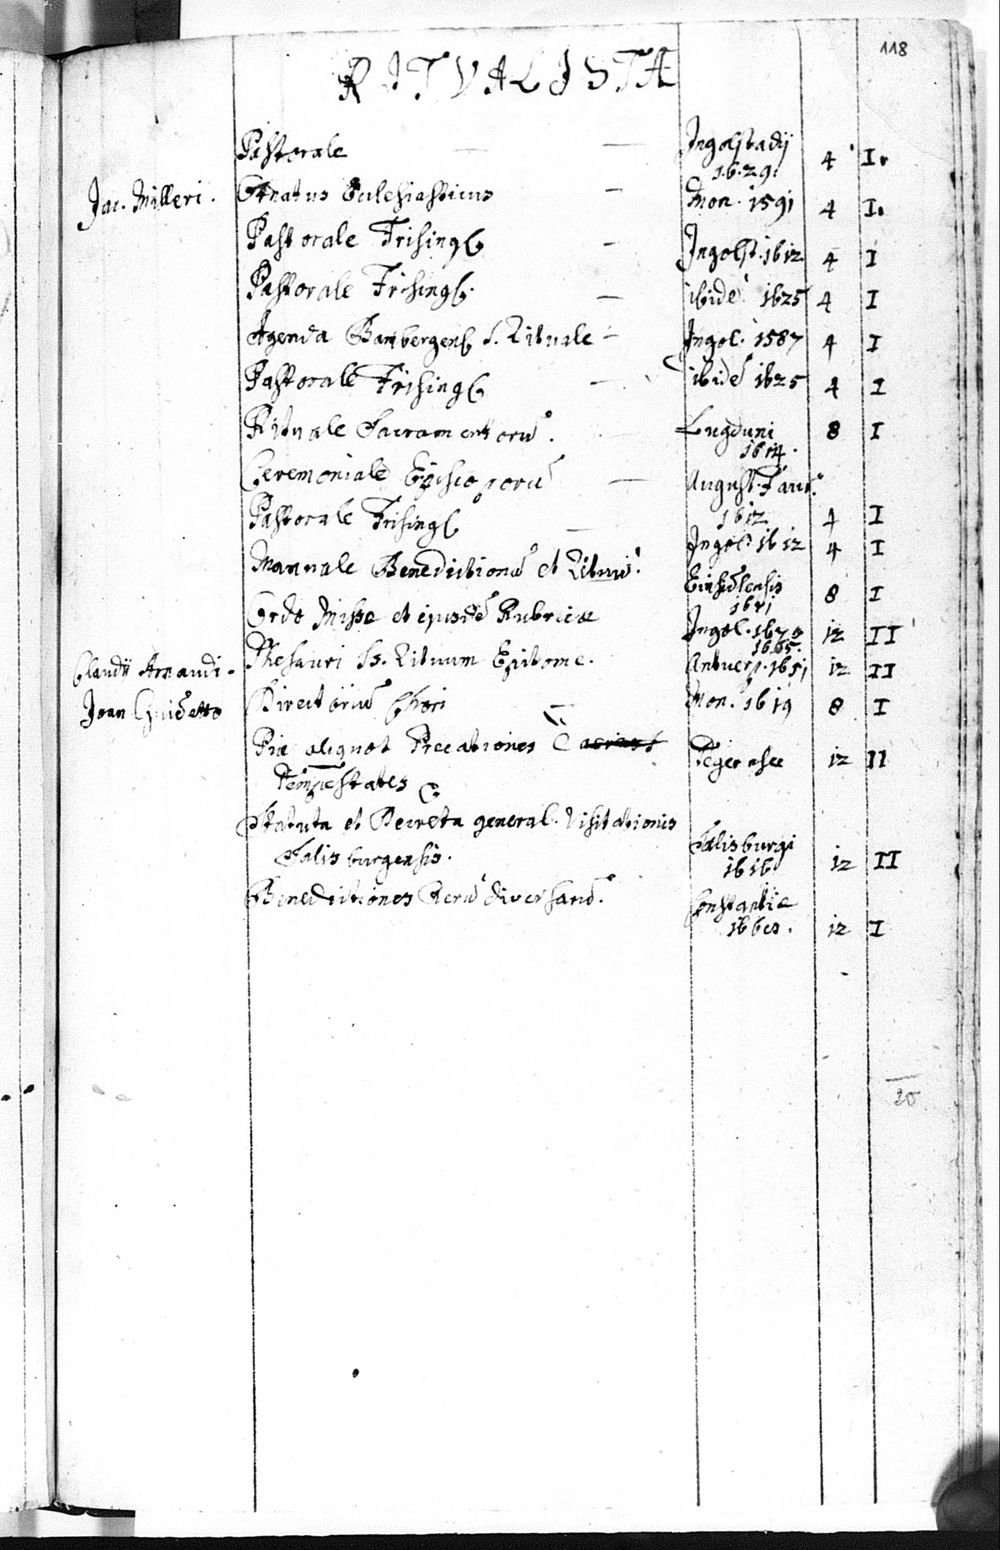 118
RITVALISTÆ
Pastorale — — Ingolstadij 1629. 4 I.
Jac. Milleri. Ornatus Ecclesiasticus — Mon. 1591 4 I.
Pastorale Frising — Ingolst. 1612 4 I
Pastorale Frising. — ibidē 1625 4 I
Agenda Bambergens s. Rituale — Ingol. 1587 4 I
Pastorale Frising — ibidē 1625 4 I
Rituale Sacramentorū. Lugduni 1614. 8 I
Ceremoniale Episcoporū — August. Taur. 1612 4 I
Pastorale Frising — Ingol. 1612 4 I
Manuale Benedictionū et Rituū. Einsidlensis 8 I
Ordo Missæ et ejusdē Rubricæ Ingol. 1670 1665. 12 II
Claudii Arnaudi. Thesauri SS. Rituum Epitome. Antuerp. 1651 12 II
Joan Guidetto Directoriū Chori — Mon. 1619 8 I
Piæ aliquot Precationes Tegernsee 12 II
Tempestates
Statuta et Decreta general. Visitationis
Salisburgensis. Salisburgi 1616 12 II
Benedictiones Rerū diversarū. Constantiæ 12 I
20